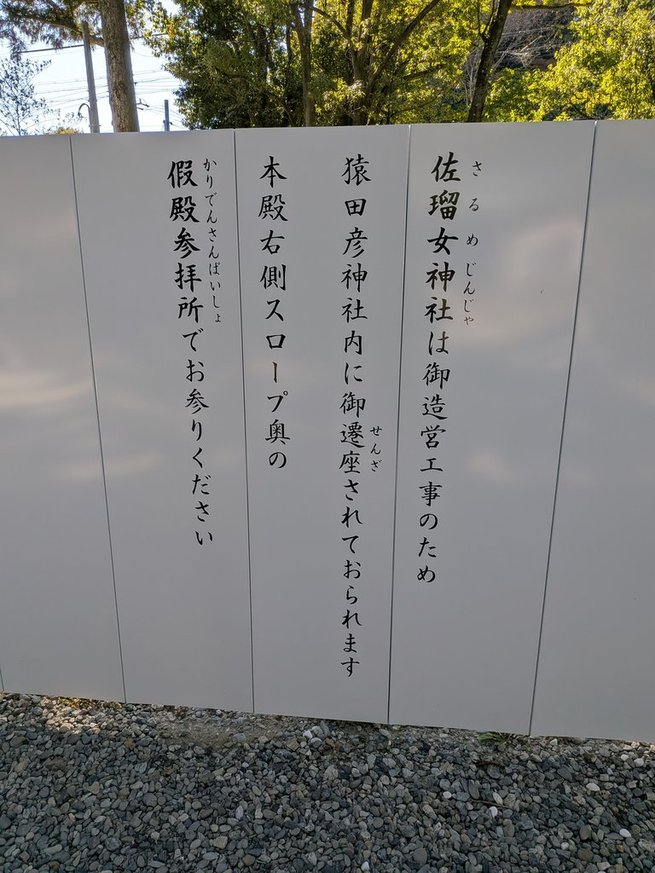 佐瑠女神社は御造営工事のため
さるめじんじゃ
猿田彦神社内に御遷座されておられます
せんざ
本殿右側スロープ奥の
假殿参拝所でお参りください
かりでんさんぱいしょ